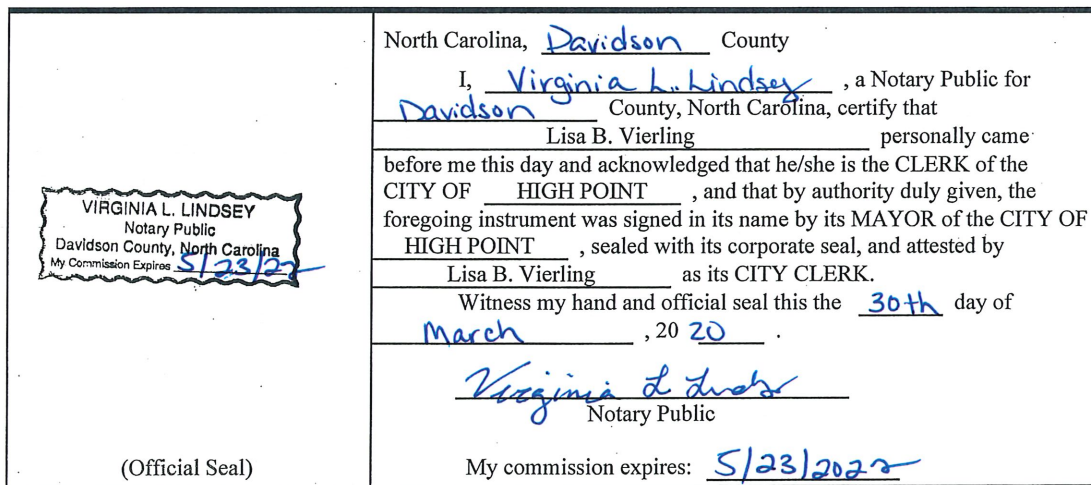 VIRGINIA L. LINDSEY
Notary Public
Davidson County, North Carolina
My Commission Expires 5/23/22
(Official Seal)
North Carolina, Davidson County
I, Virginia L. Lindsey , a Notary Public for
Davidson County, North Carolina, certify that
Lisa B. Vierling personally came
before me this day and acknowledged that he/she is the CLERK of the
CITY OF HIGH POINT , and that by authority duly given, the
foregoing instrument was signed in its name by its MAYOR of the CITY OF
HIGH POINT , sealed with its corporate seal, and attested by
Lisa B. Vierling as its CITY CLERK.
Witness my hand and official seal this the 30th day of
March , 20 20 .
Virginia L Lindsey
Notary Public
My commission expires: 5/23/2022